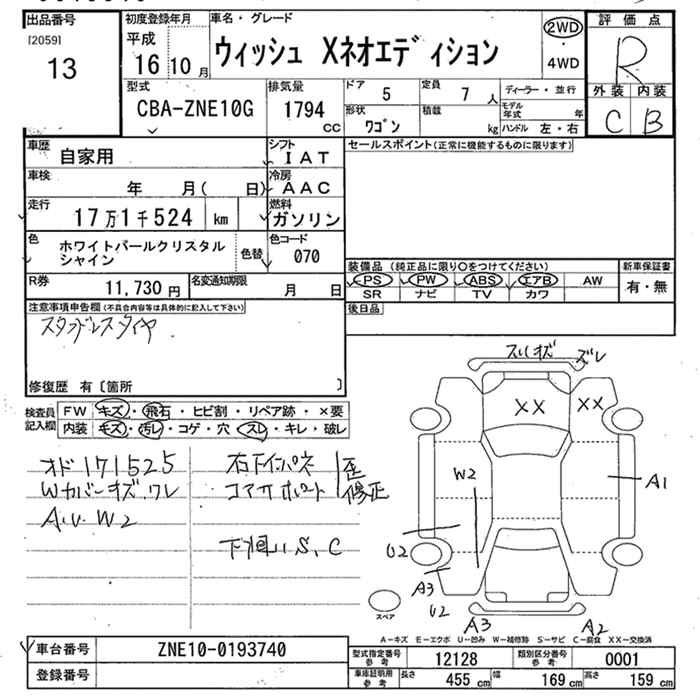 出品番号
[2059]
13
初度登録年月
平成
16 10 月
車名・グレード
ウィッシュ Xネオエディション
2WD
・
4WD
評価点
R
外装 内装
C B
型式
CBA-ZNE10G
排気量
1794
CC
ドア 5
定員 7 人
形状 ワゴン
積載 kg
ディーラー・並行
モデル年式 年
ハンドル 左・右
車歴 自家用
シフト IAT
車検 年 月( 日)
冷房 AAC
走行 17万1千524 km
燃料 ガソリン
色 ホワイトパールクリスタル
シャイン
色替
色コード 070
R券 11,730 円
名変通知期限 月 日
セールスポイント(正常に機能するものに限ります)
装備品 (純正品に限り○をつけてください)
新車保証書
PS PW ABS エアB AW
有・無
SR ナビ TV カワ
後日品
注意事項申告欄(不具合内容等は具体的に記入して下さい)
スタッドレスタイヤ
修復歴 有〔箇所 〕
検査員
記入欄
FW キズ・飛石・ヒビ割・リペア跡・×要
内装 キズ・汚レ・コゲ・穴・スレ・キレ・破レ
オド171525
Wカバーキズ、ワレ
A.U.W2
右フインパネ
コアサポート
歪
修正
下廻り、S、C
スリキズ ズレ
XX
XX
W2
A1
U2
A3
U2
A3
A2
スペア
A-キズ E-エクボ U-凹み W-補修跡 S-サビ C-腐食 XX-交換済
車台番号 ZNE10-0193740
登録番号
型式指定番号
参考
12128
類別区分番号
参考
0001
車庫証明用
参考
長さ 455 cm
幅 169 cm
高さ 159 cm